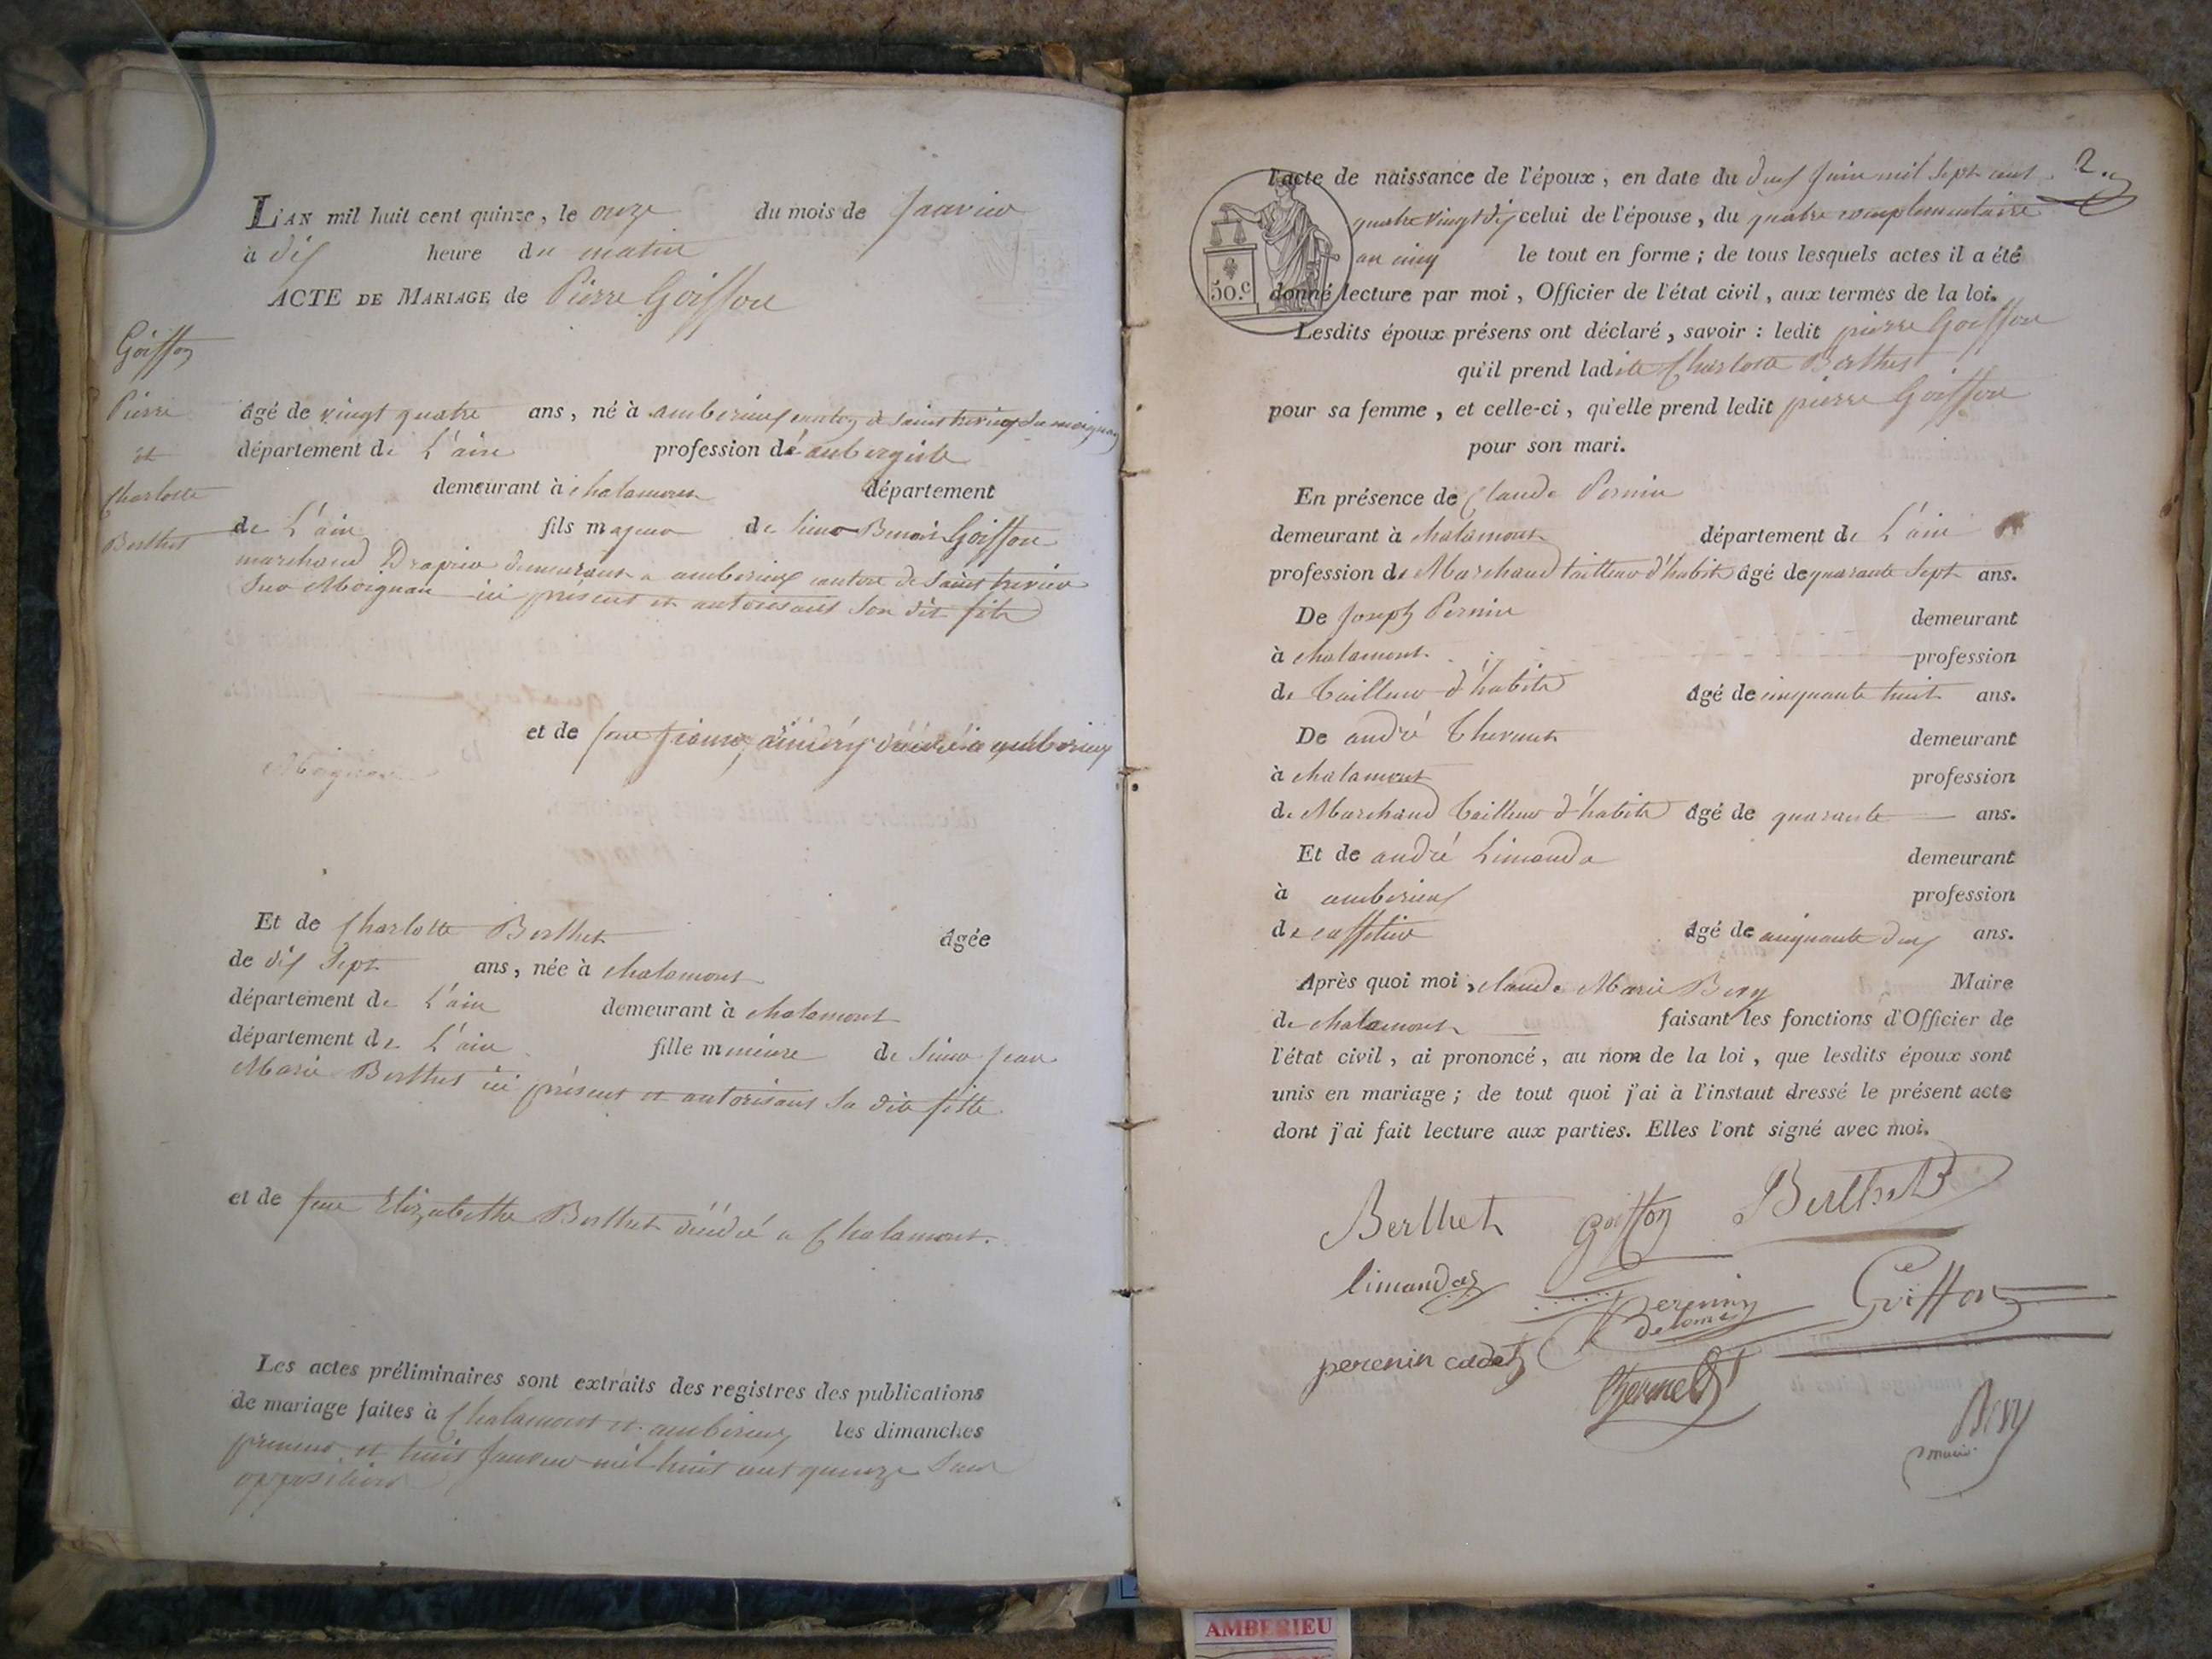 L'AN mil huit cent quinze, le onze du mois de Janvier
à dix heure du matin
ACTE DE MARIAGE de Pierre Goiffon
Goiffon
Pierre
et
Charlotte
Berthet
âgé de vingt quatre ans, né à amberieux canton de Saint trivier Sur moignan
département de L'ain profession d'aubergiste
demeurant à chalamont département
de L'ain fils majeur de Sieur Benoit Goiffon
marchand Drapier demeurant a amberieux canton de Saint trivier
Sur Moignan ici présent et autorisant Son dit fils
et de feue décédée a amberieux
Moignan
Et de Charlotte Berthet âgée
de dix Sept ans, née à chalamont
département de L'ain demeurant à chalamont
département de L'ain fille mineure de Sieur Jean
Marie Berthet ici présent et autorisant Sa dite fille
et de feue Elizabethe Berthet décédé a Chalamont.
Les actes préliminaires sont extraits des registres des publications
de mariage faites à Chalamont et amberieux les dimanches
premier et huit Janvier mil huit cent quinze Sans
opposition
2
l'acte de naissance de l'époux, en date du deux Juin mil Sept cent
quatre vingt dix celui de l'épouse, du quatre complementaire
an cinq le tout en forme; de tous lesquels actes il a été
50.c
donné lecture par moi, Officier de l'état civil, aux termes de la loi.
Lesdits époux présens ont déclaré, savoir: ledit pierre Goiffon
qu'il prend ladite Charlotte Berthet
pour sa femme, et celle-ci, qu'elle prend ledit pierre Goiffon
pour son mari.
En présence de Claude Pernin
demeurant à chalamont département de L'ain
profession de Marchand tailleur d'habits âgé de quarante Sept ans.
De Joseph Pernin demeurant
à chalamont profession
de tailleur d'habits âgé de cinquante huit ans.
De andré demeurant
à chalamont profession
de Marchand tailleur d'habits âgé de quarante ans.
Et de andré Limandas demeurant
à amberieux profession
de caffetier âgé de cinquante deux ans.
Après quoi moi, claude Marie Bery Maire
de chalamont faisant les fonctions d'Officier de
l'état civil, ai prononcé, au nom de la loi, que lesdits époux sont
unis en mariage; de tout quoi j'ai à l'instaut dressé le présent acte
dont j'ai fait lecture aux parties. Elles l'ont signé avec moi.
Berthet Goiffon Berthet
limandas Perenin Goiffon
perenin cadet
Bery
maire
AMBERIEU